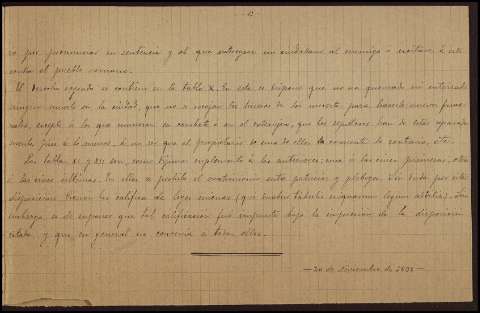 - 12 -
ro por pronunciar su sentencia y al que entregue un ciudadano al enemigo ó excitare á este
contra el pueblo romano.
El derecho sagrado se contiene en la tabla X. En esta se dispone que no sea quemado ni enterrado
ningun muerto en la ciudad, que no se recojan los huesos de los muertos para hacerle nuevos fune-
rales, excepto á los que mueran en combate ó en el extranjero, que los sepulcros han de estar separados
sesenta pies á lo menos, á no ser que el propietario consienta lo contrario, etc.
Las tablas XI y XII son, como digimos suplemento á las anteriores; una á las cinco primeras, otra
á las cinco últimas. En ellas se prohibe el matrimonio entre patricios y plebeyos. Sin duda por esta
disposicion Ciceron las califica de leyes inicuas (qui duabus tabulis iniquarum legum additis). Sin
embargo es de suponer que tal calificacion fué impuesta bajo la impresion de la disposicion
citada y que en general no convenia á todas ellas.
— 20 de Noviembre de